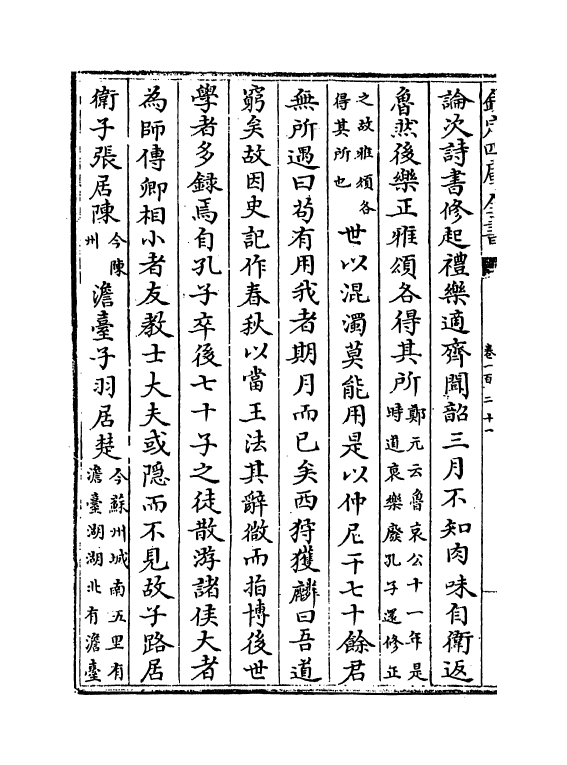 欽定四庫全書
卷一百二十一
論次詩書修起禮樂適齊聞韶三月不知肉味自衛返
魯然後樂正雅頌各得其所鄭元云魯哀公十一年是
時道衰樂廢孔子還修正
之故雅頌各
得其所也
世以混濁莫能用是以仲尼干七十餘君
無所遇曰苟有用我者期月而已矣西狩獲麟曰吾道
窮矣故因史記作春秋以當王法其辭微而指博後世
學者多錄焉自孔子卒後七十子之徒散游諸侯大者
為師傅卿相小者友教士大夫或隠而不見故子路居
衛子張居陳今陳
州
澹臺子羽居楚今蘇州城南五里有
澹臺湖湖北有澹臺